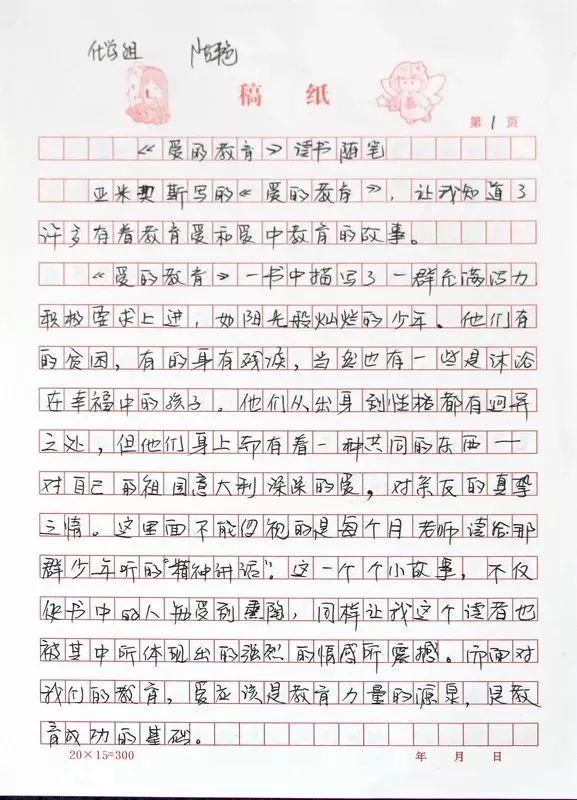 化学组 陆艳
稿纸
第1页
《爱的教育》读书随笔
亚米契斯写的《爱的教育》，让我知道了
许多有着教育爱和爱中教育的故事。
《爱的教育》一书中描写了一群充满活力
积极要求上进，如阳光般灿烂的少年。他们有
的贫困，有的身有残疾，当然也有一些是沐浴
在幸福中的孩子。他们从出身到性格都有迥异
之处，但他们身上却有着一种共同的东西——
对自己的祖国意大利深深的爱，对亲友的真挚
之情。这里面不能忽视的是每个月老师读给那
群少年听的“精神讲话”。这一个个小故事，不仅
使书中的人物受到熏陶，同样让我这个读者也
被其中所体现出的强烈的情感所震撼。而面对
我们的教育，爱应该是教育力量的源泉，是教
育成功的基础。
20×15=300
年 月 日